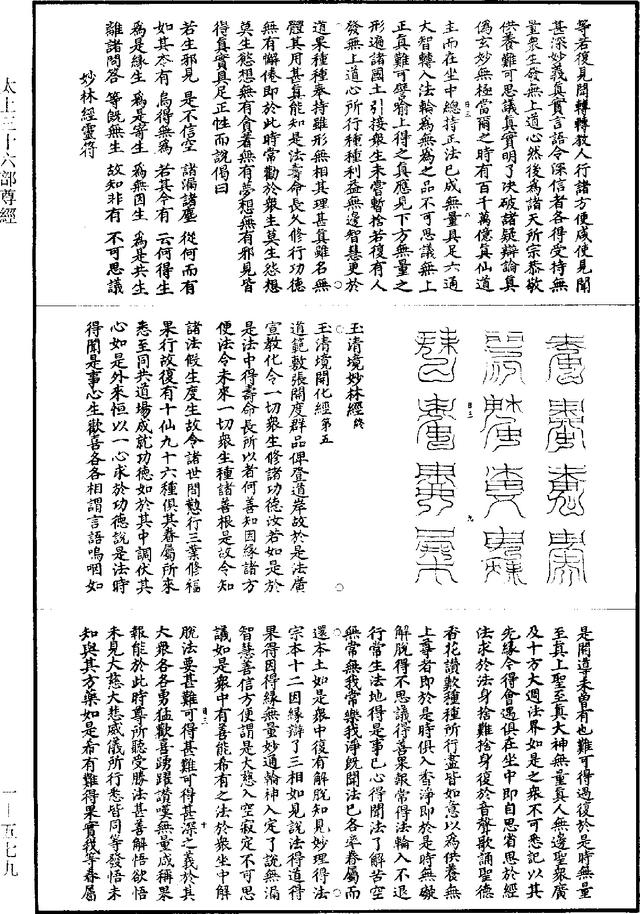 等若復見聞轉轉教人行諸方便咸使見聞
甚深妙義真實言語令深信者各得受持無
量眾生發無上道心然後為諸天所宗恭敬
供養難可思議真實明了決破諸疑辯論真
偽玄妙無極當爾之時有百千萬億真仙道
主而在坐中總持正法已成無量具足六通
大智轉入法輪為無為之品不可思議無上
正真難可譬喻上得之真應見下方無量之
形遍諸國土引接眾生未嘗暫捨若復有人
發無上道心所行種種利益無邊智慧更於
道果種種奉持雖形無相其理甚真雖名無
體其用甚真能知是法壽命長久修行功德
無有懈倦即於此時常勸於眾生莫生愁想
莫生慾想無有貪著無有夢想無有邪見皆
得真實具足正性而說偈曰
若生邪見 是不信空 諸漏諸塵 從何而有
如其本有 烏得無為 若其今有 云何得生
為是緣生 為是寄生 為無因生 為是共生
離諸問答 等既無生 故知非有 不可思議
妙林經靈符
玉清境妙林經終
玉清境開化經第五
道範敷張開度群品俾登道岸故於是法廣
宣教化令一切眾生修諸功德汝若如是於
是法中得壽命長所以者何善知因緣諸方
便法令未來一切眾生種諸善根是故令知
諸法假生度生故令諸世間懃行三業修福
果行故復有十仙九十六種俱其眷屬所來
悉至同共道場成就功德如於其中調伏其
心如是外來恒以一心求於功德說是法時
得聞是事心生歡喜各各相謂言語嗚咽如
是聞道未曾有也難可得過復於是時無量
至真上聖至真大神無量真人無邊聖眾廣
及十方大週法界如是之眾不可悉記以其
先緣令得會過俱在坐中即自思省思於經
法求於法身捨難捨身復於音聲歌誦聖德
香花讚歎種種所行盡皆如意以為供養無
上尊者即於是時俱入香淨即於是時無礙
解脫得不思議得善果報常得法輪入不退
行常生法地得是事已心得聞法了解苦空
無常無我常樂我淨既聞法已各率眷屬而
還本土如是眾中復有解脫知見妙理得法
宗本十二因緣辯了三相如見說法得道得
果得因得緣無量妙通輪神入定了說無漏
智慧善信方便謂是大慈入空寂定不可思
議如是眾中有善能希有之法於眾坐中解
脫法要甚難可得甚難可得甚深之義於其
大眾各各勇猛歡喜踴躍讚嘆無量咸稱果
報能於此時尊所聽受勝法甚善解悟欲悟
未見大慈大悲威儀所行悉皆同等發悟未
知與其方藥如是希有難得果實我等眷屬
太上三十六部尊經
一—五七九